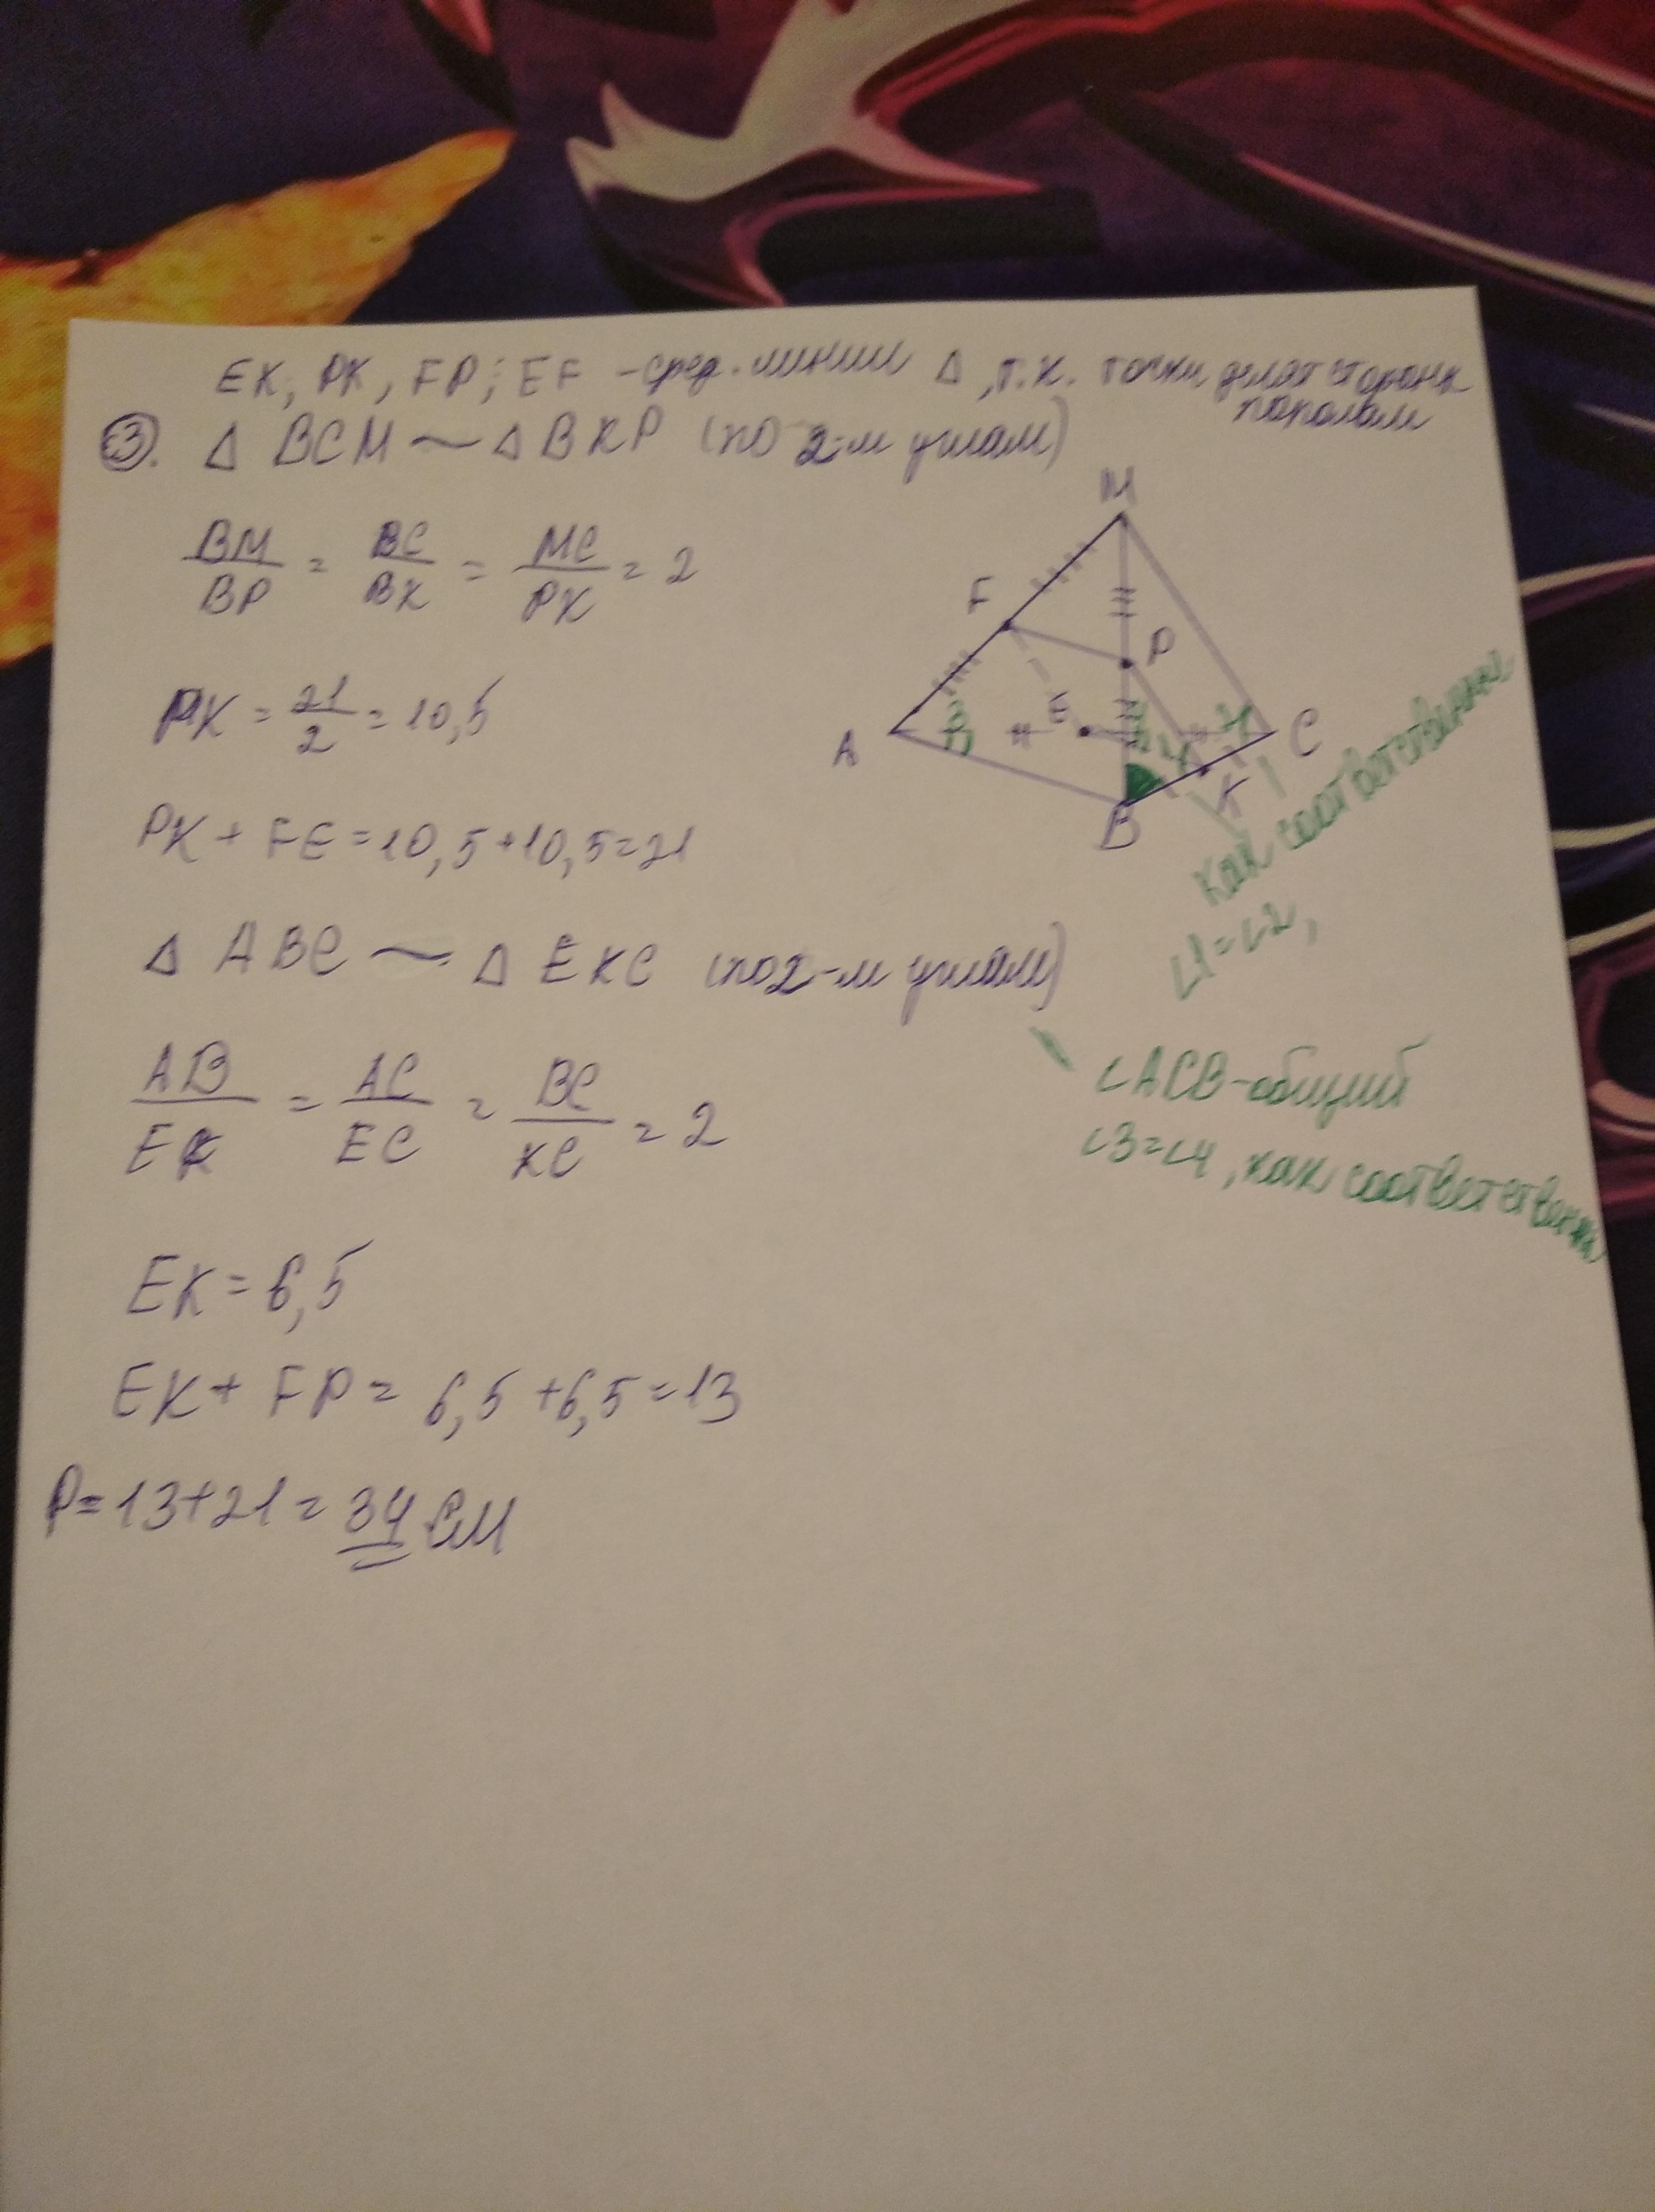 EK, PK, FP; EF - сред. линии Δ, т.к. точки делят стороны
пополам
③. Δ BCM ~ Δ BKP (по 2-м углам)
BM/BP = BC/BK = MC/PK = 2
PK = 21/2 = 10,5
PK + FE = 10,5 + 10,5 = 21
Δ ABC ~ Δ EKC (по 2-м углам)
AB/EK = AC/EC = BC/KC = 2
EK = 6,5
EK + FP = 6,5 + 6,5 = 13
P = 13 + 21 = 34 см
M
F
P
A
3
E
4
2
1
C
K
B
∠1 = ∠2,
как соответственные
∠ACB - общий
∠3 = ∠4, как соответственн